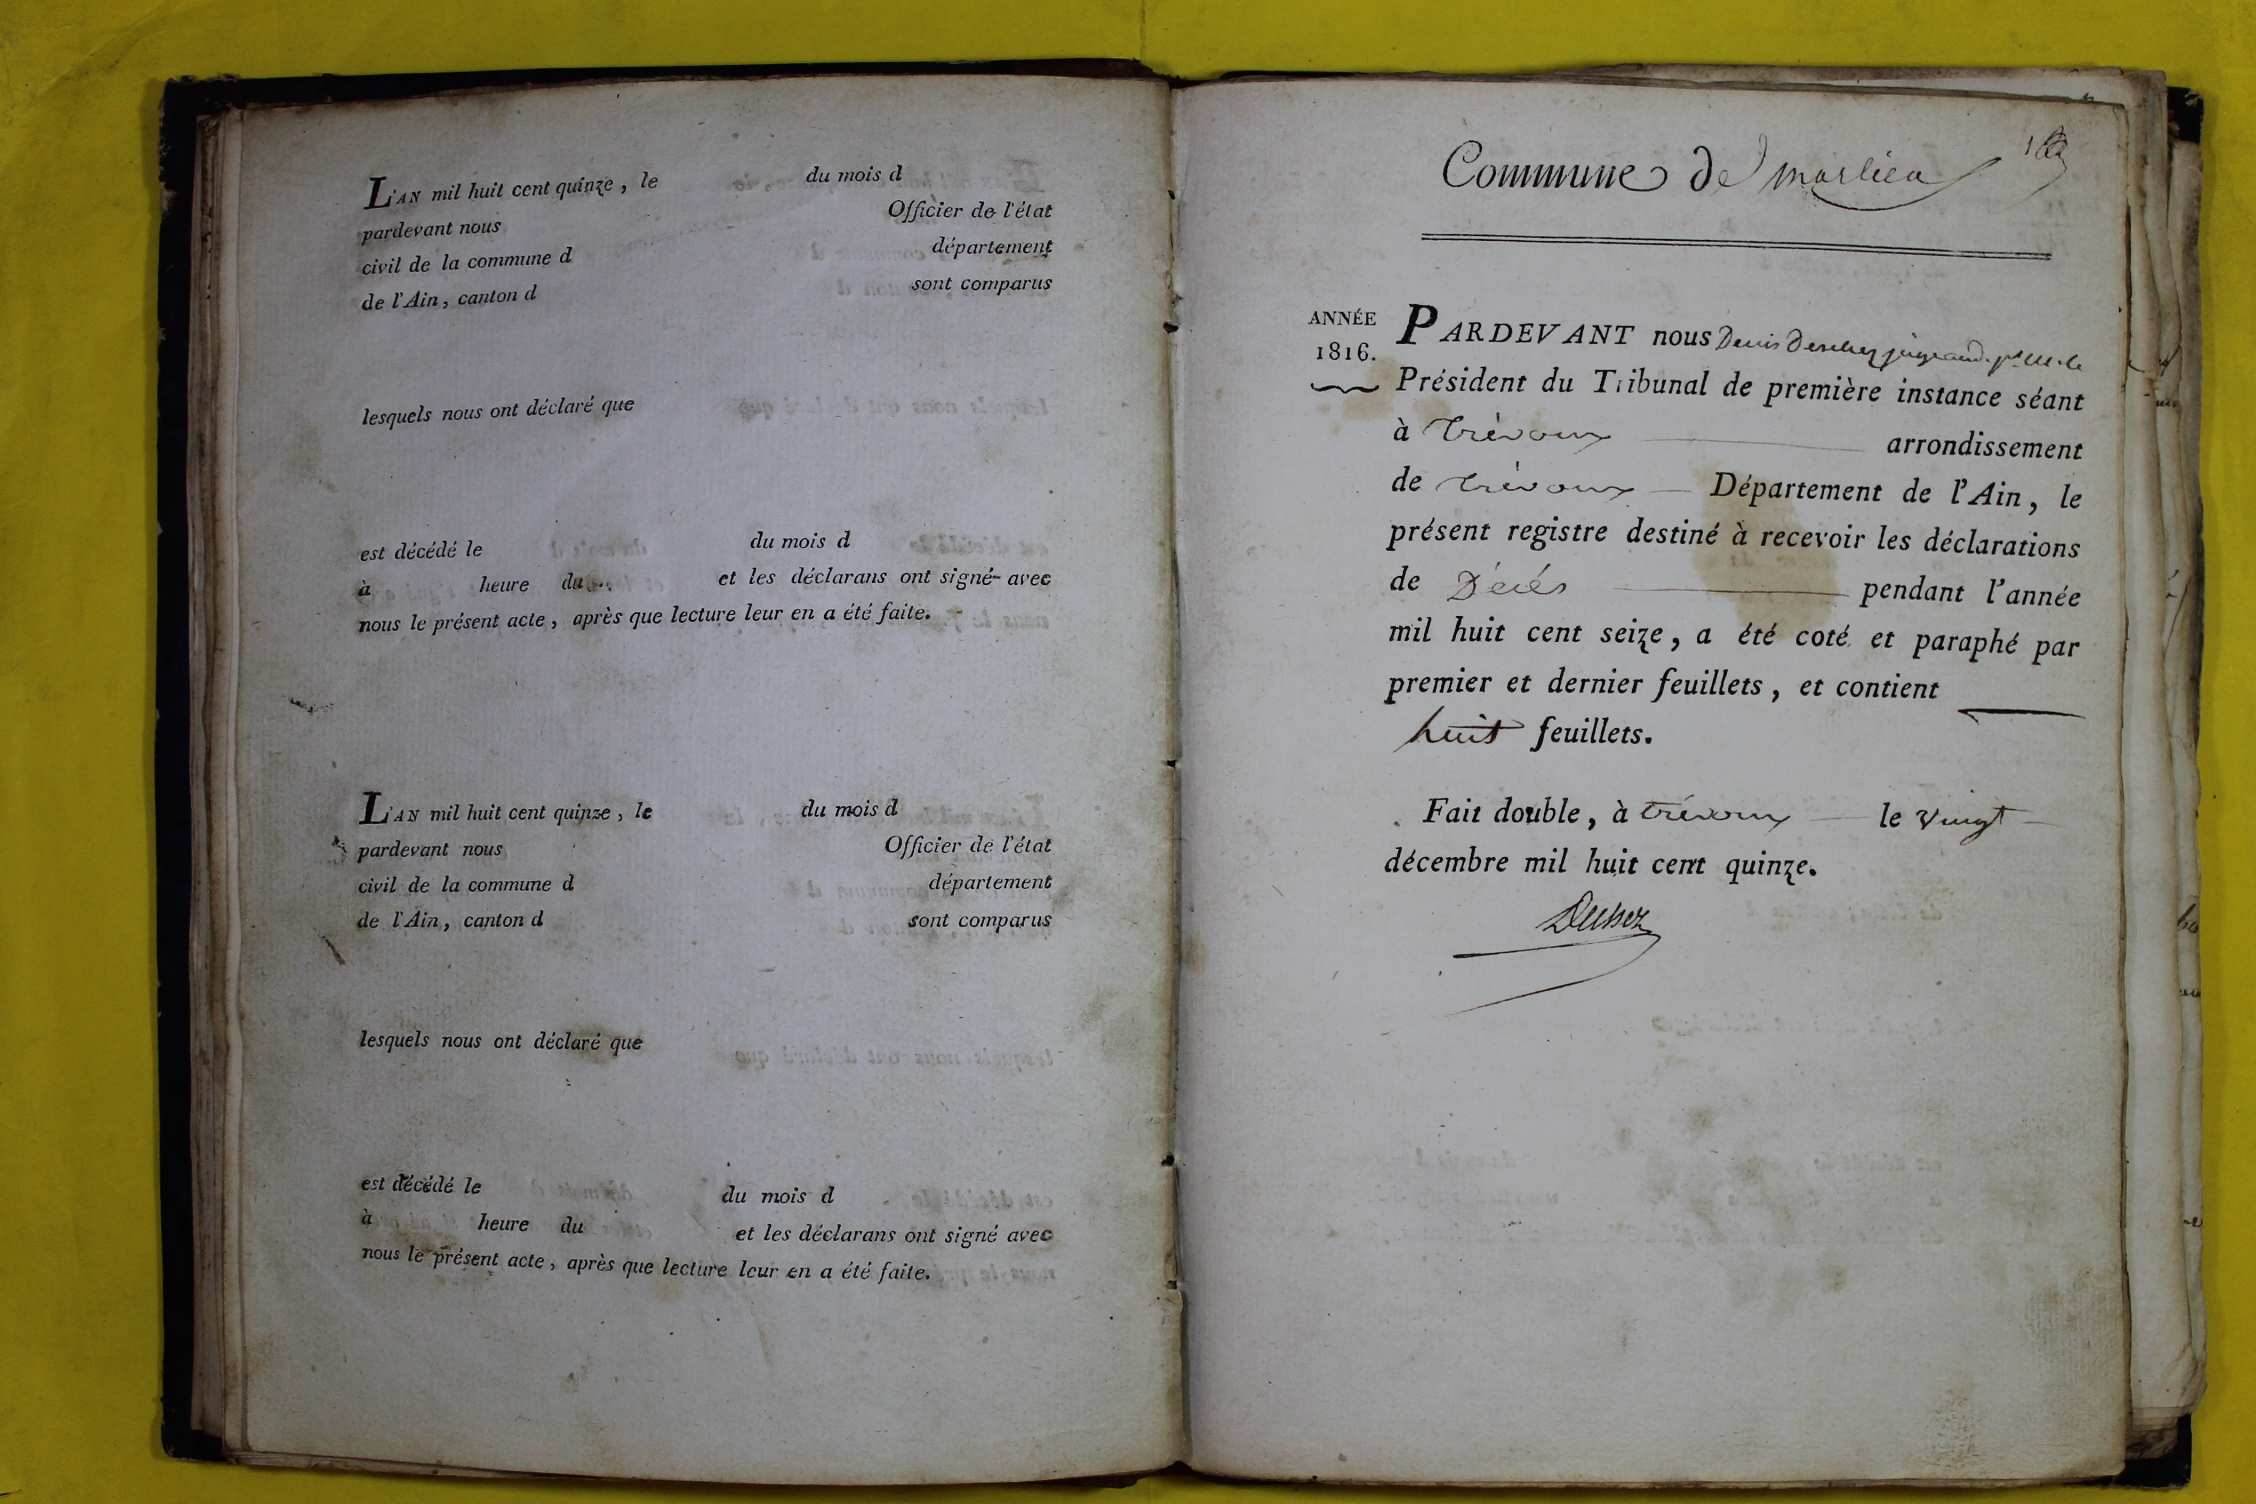 L'AN mil huit cent quinze, le du mois d
pardevant nous Officier de l'état
civil de la commune d département
de l'Ain, canton d sont comparus
lesquels nous ont déclaré que
est décédé le du mois d
à heure du et les déclarans ont signé avec
nous le présent acte, après que lecture leur en a été faite.
L'AN mil huit cent quinze, le du mois d
pardevant nous Officier de l'état
civil de la commune d département
de l'Ain, canton d sont comparus
lesquels nous ont déclaré que
est décédé le du mois d
à heure du et les déclarans ont signé avec
nous le présent acte, après que lecture leur en a été faite.
Commune de marlieu
ANNÉE
1816.
PARDEVANT nous Denis
Président du Tribunal de première instance séant
à trévoux arrondissement
de trévoux Département de l'Ain, le
présent registre destiné à recevoir les déclarations
de Décés pendant l'année
mil huit cent seize, a été coté et paraphé par
premier et dernier feuillets, et contient
huit feuillets.
Fait double, à trévoux le vingt
décembre mil huit cent quinze.